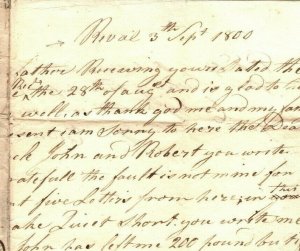 Reval 3th Sept 1800
ather Receiving yours dated the
the 28th of augst and is glad to he
well, as thank god me and my fa
sent iam Sorry to here the Dea
ck John and Robert you write
ratefull the fault is not mine for
nt five Letters from here in this
ake Quiet Short. you write me
John has left me 200 pound but